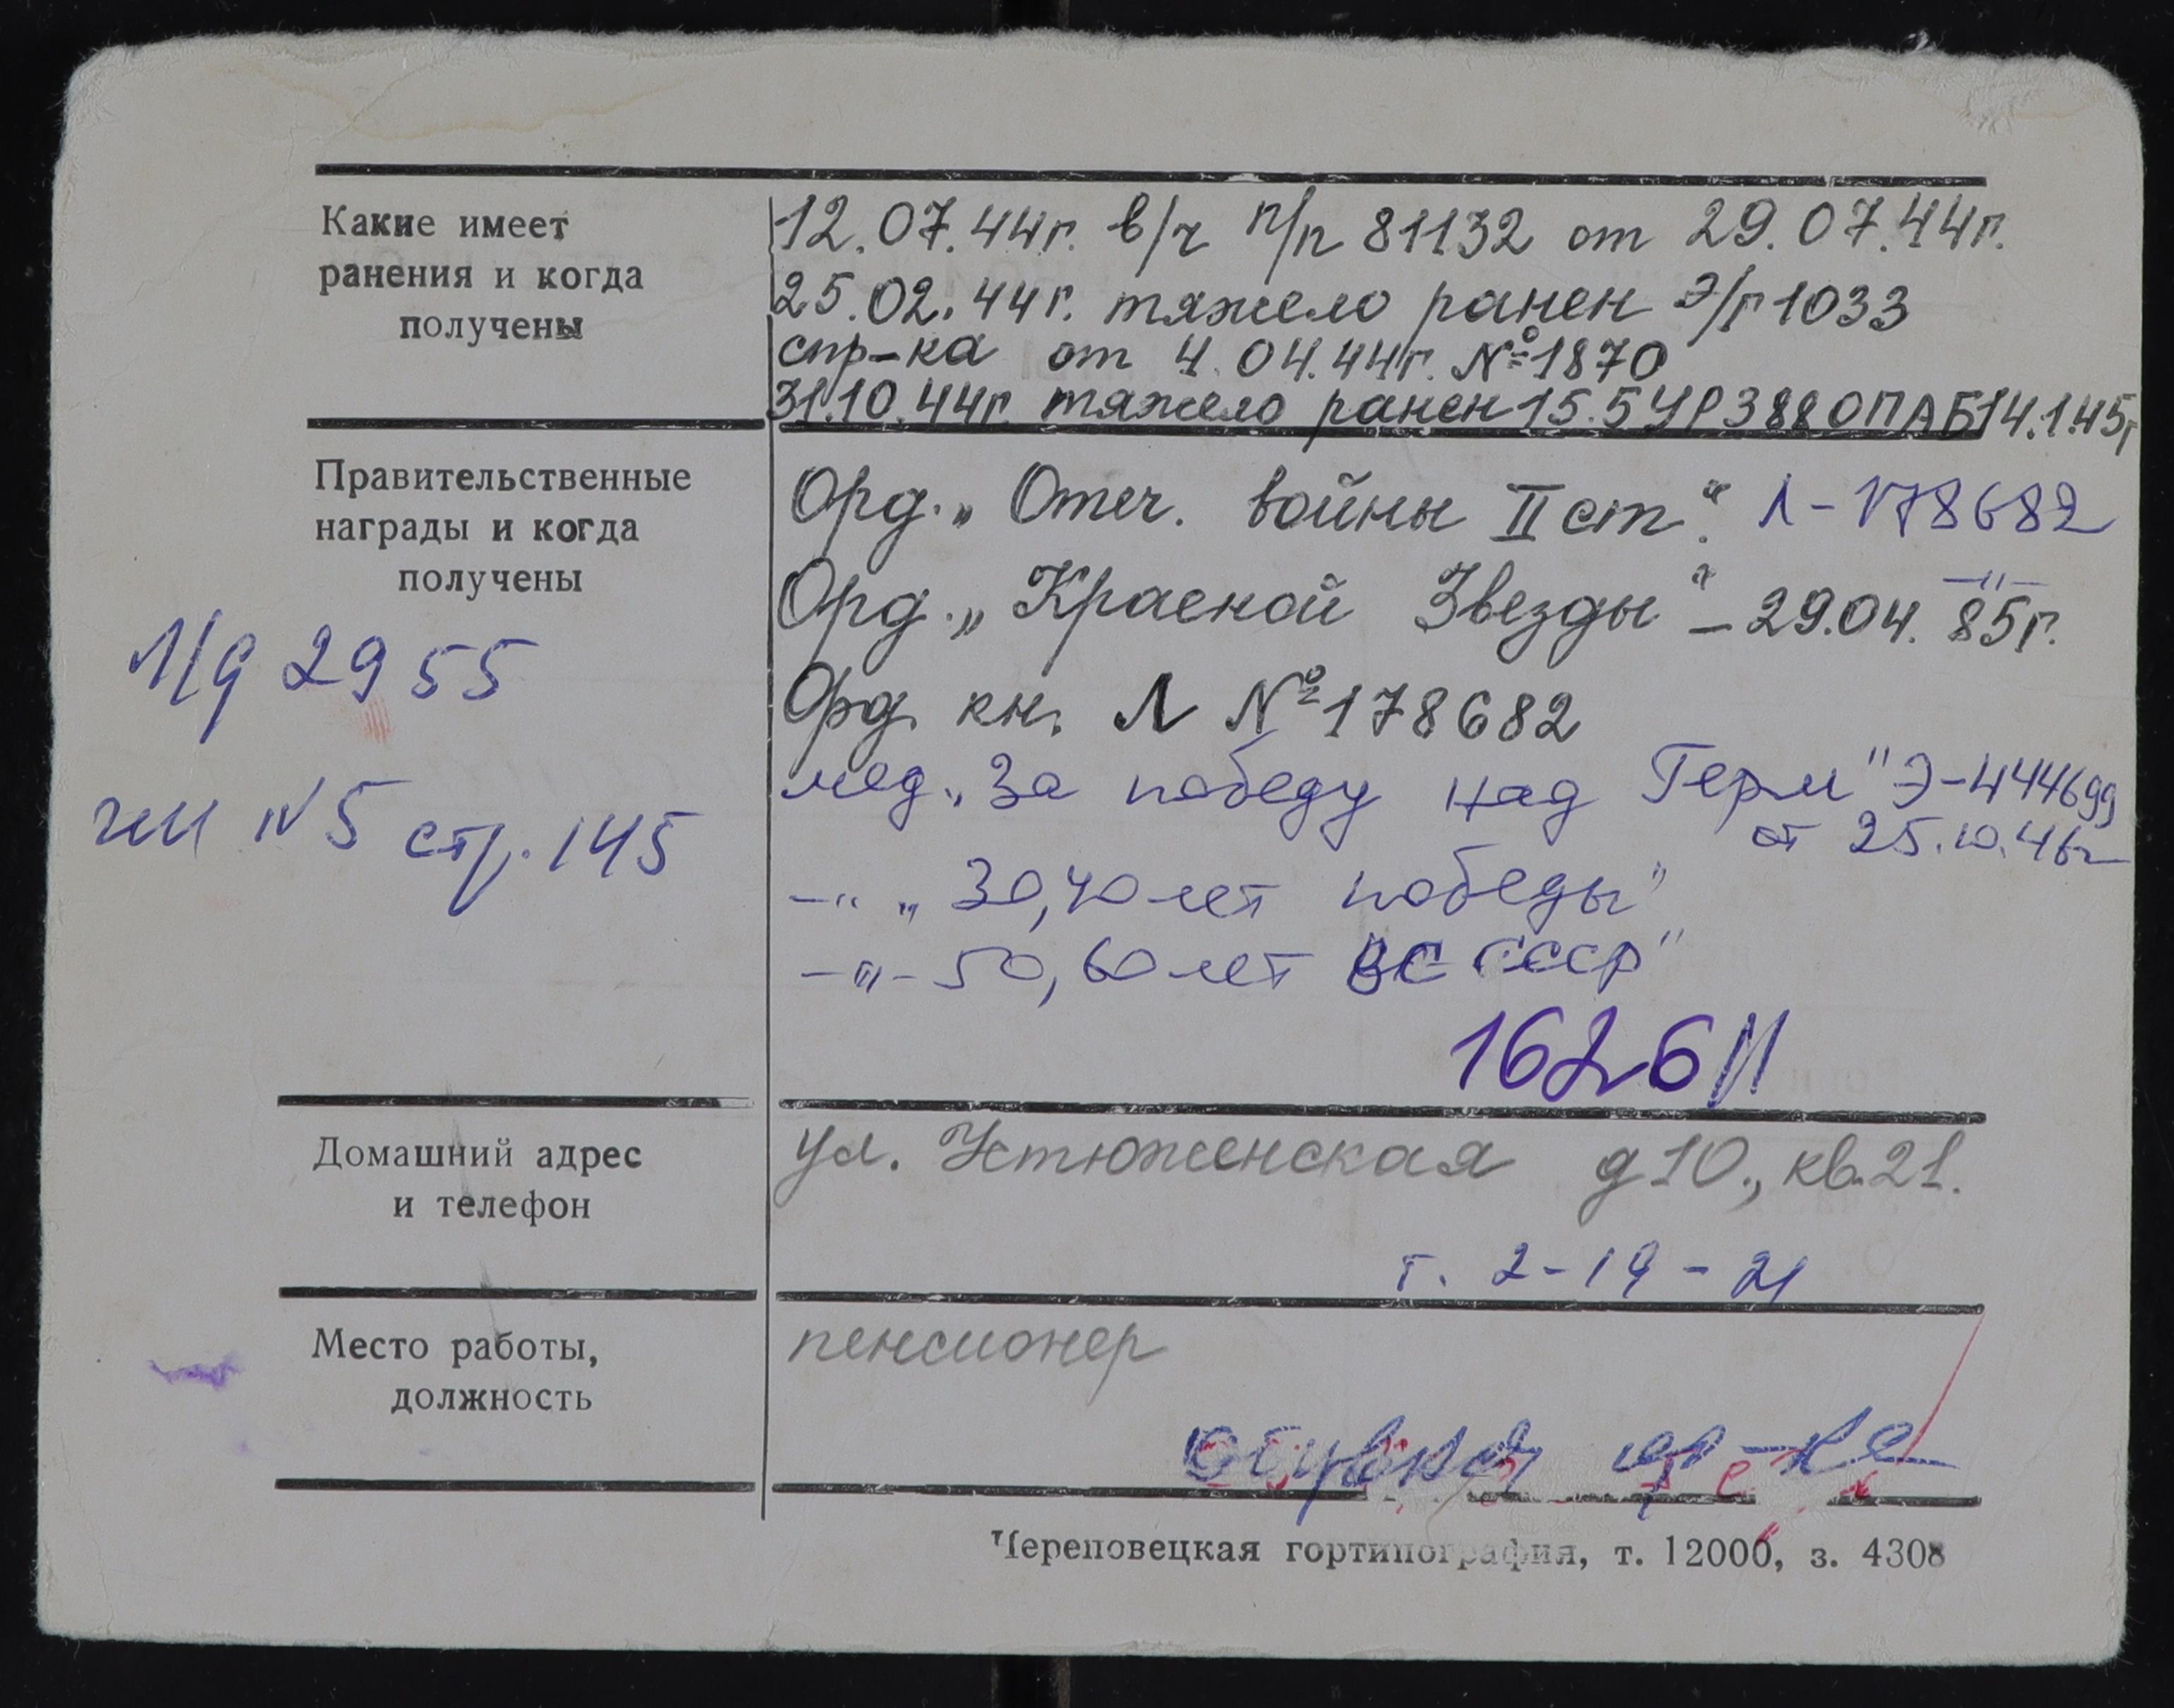 Какие имеет
ранения и когда
получены
12.07.44г. в/ч п/п 81132 от 29.07.44г.
25.02.44г. тяжело ранен Э/Г 1033
спр-ка от 4.04.44г. №1870
31.10.44г. тяжело ранен 15.5 УР 388 ОПАБ 14.1.45г
Правительственные
награды и когда
получены
Орд. „Отеч. войны II ст." Л-178682
Орд. „Красной Звезды" – 29.04.85г. –"–
Орд. кн. Л №178682
мед. „За победу над Герм" Э-444699
от 25.10.46г
–"– „30,40 лет победы"
–"– 50,60 лет ВС СССР"
1626
Л/д 2955
№5 стр. 145
Домашний адрес
и телефон
ул. Устюженская д 10., кв. 21.
т. 2-19-21
Место работы,
должность
пенсионер
Череповецкая гортипография, т. 12000, з. 4308